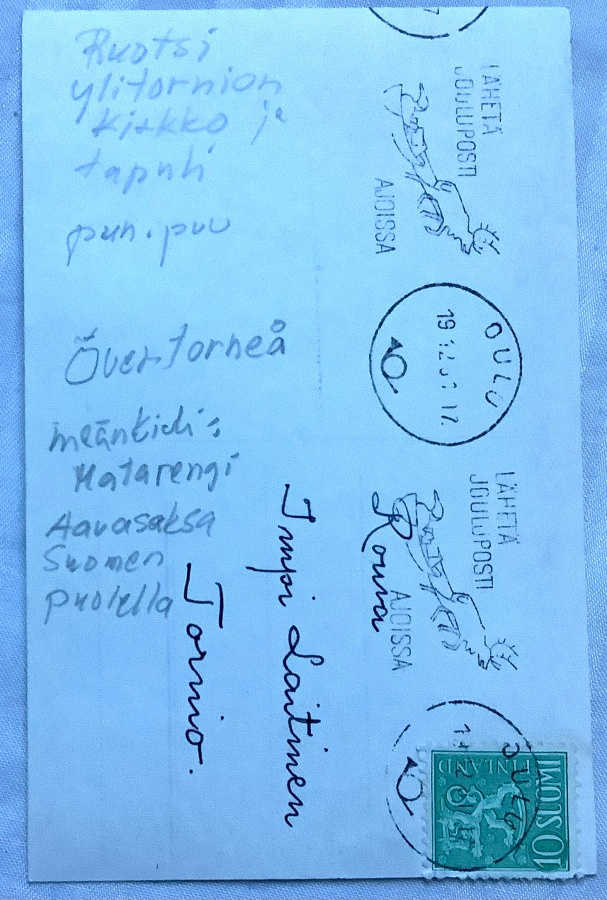 Ruotsi
ylitornion
kirkko ja
tapuli
pun. puu
Övertorneå
meänkieli:
Matarengi
Aavasaksa
Suomen
puolella
LÄHETÄ
JOULUPOSTI
AJOISSA
OULU
LÄHETÄ
JOULUPOSTI
AJOISSA
OULU
10 SUOMI
FINLAND
Rouva
Impi Laitinen
Tornio.